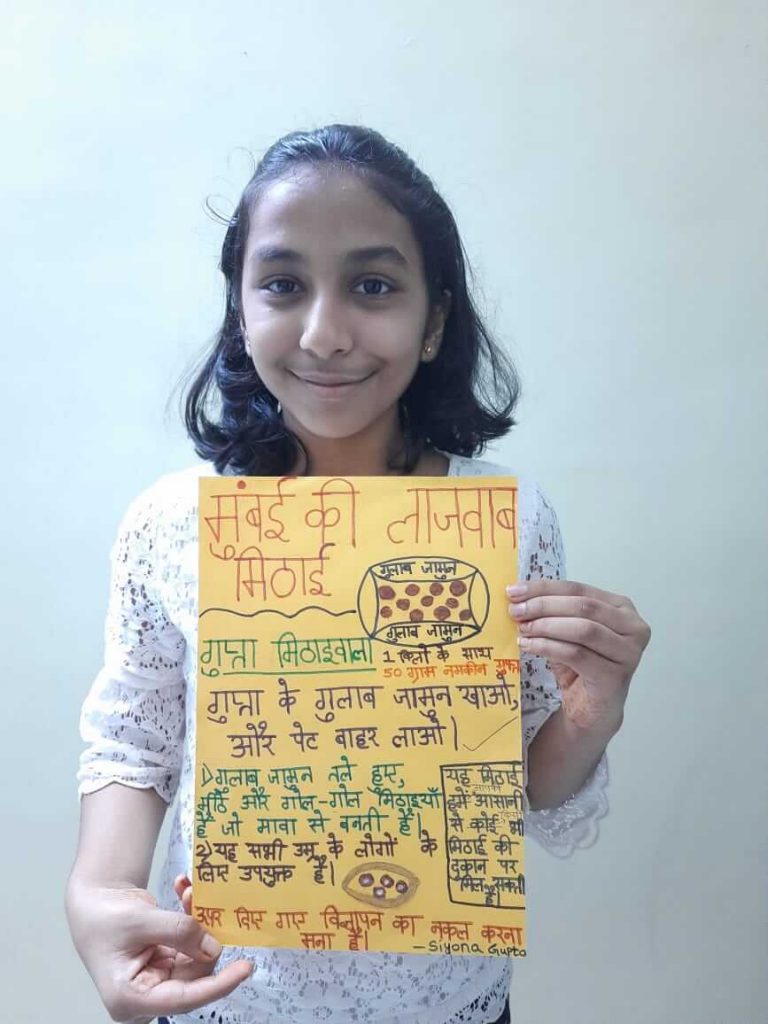 मुंबई की लाजवाब
मिठाई
गुलाब जामुन
गुलाब जामुन
गुप्ता मिठाइवाला
1 किलो के साथ
50 ग्राम नमकीन मुफ्त
गुप्ता के गुलाब जामुन खाओ,
और पेट बाहर लाओ।
1) गुलाब जामुन तले हुए,
मीठे और गोल-गोल मिठाइयाँ
है जो मावा से बनती है।
2) यह सभी उम्र के लोगों के
लिए उपयुक्त है।
यह मिठाई
हमें आसानी
से कोई भी
मिठाई की
दुकान पर
मिल सकती
है।
ऊपर दिए गए विज्ञापन का नकल करना
मना है।
- Siyona Gupta